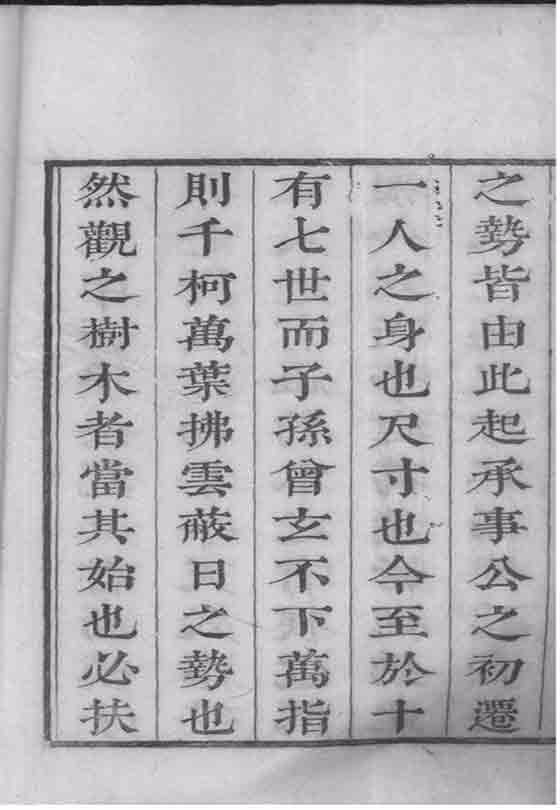 之勢皆由此起承事公之初遷
一人之身也尺寸也今至於十
有七世而子孫曾玄不下萬指
則千柯萬葉拂雲蔽日之勢也
然觀之樹木者當其始也必扶